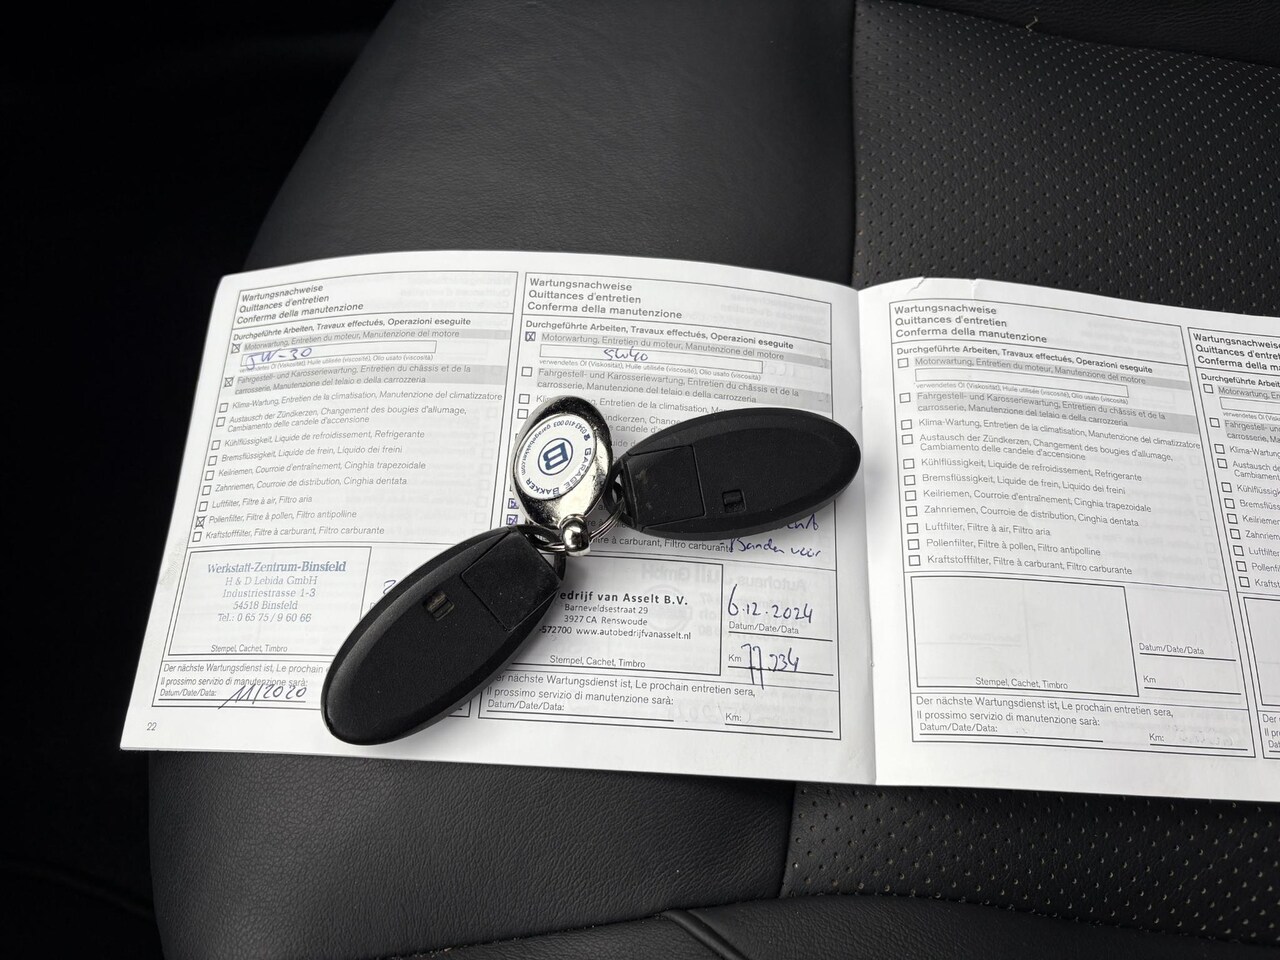 Wartungsnachweise
Quittances d'entretien
Conferma della manutenzione
Durchgeführte Arbeiten, Travaux effectués, Operazioni eseguite
Motorwartung, Entretien du moteur, Manutenzione del motore
5W-30
verwendetes Öl (Viskosität), Huile utilisée (viscosité), Olio usato (viscosità)
Fahrgestell- und Karosseriewartung, Entretien du châssis et de la
carrosserie, Manutenzione del telaio e della carrozzeria
Klima-Wartung, Entretien de la climatisation, Manutenzione del climatizzatore
Austausch der Zündkerzen, Changement des bougies d'allumage,
Cambiamento delle candele d'accensione
Kühlflüssigkeit, Liquide de refroidissement, Refrigerante
Bremsflüssigkeit, Liquide de frein, Liquido dei freini
Keilriemen, Courroie d'entraînement, Cinghia trapezoidale
Zahnriemen, Courroie de distribution, Cinghia dentata
Luftfilter, Filtre à air, Filtro aria
Pollenfilter, Filtre à pollen, Filtro antipolline
Kraftstofffilter, Filtre à carburant, Filtro carburante
Werkstatt-Zentrum-Binsfeld
H & D Lebida GmbH
Industriestrasse 1-3
54518 Binsfeld
Tel.: 0 65 75 / 9 60 66
Stempel, Cachet, Timbro
Der nächste Wartungsdienst ist, Le prochain
Il prossimo servizio di manutenzione sarà:
Datum/Date/Data: 11/2020
22
Wartungsnachweise
Quittances d'entretien
Conferma della manutenzione
Durchgeführte Arbeiten, Travaux effectués, Operazioni eseguite
Motorwartung, Entretien du moteur, Manutenzione del motore
5W40
verwendetes Öl (Viskosität), Huile utilisée (viscosité), Olio usato (viscosità)
Fahrgestell- und Karosseriewartung, Entretien du châssis et de la
carrosserie, Manutenzione del telaio e della carrozzeria
Klima-Wartung, Entretien de la climatisation, Manutenzione del
GARAGE BAKKER
B
0343 410 003
www.garagebakker.com
Filtre à carburant, Filtro carburante
Banden voor
edrijf van Asselt B.V.
Barneveldsestraat 29
3927 CA Renswoude
-572700 www.autobedrijfvanasselt.nl
Stempel, Cachet, Timbro
6.12.2024
Datum/Date/Data
Km 77.934
nächste Wartungsdienst ist, Le prochain entretien sera,
Il prossimo servizio di manutenzione sarà:
Datum/Date/Data:
Km:
Wartungsnachweise
Quittances d'entretien
Conferma della manutenzione
Durchgeführte Arbeiten, Travaux effectués, Operazioni eseguite
Motorwartung, Entretien du moteur, Manutenzione del motore
verwendetes Öl (Viskosität), Huile utilisée (viscosité), Olio usato (viscosità)
Fahrgestell- und Karosseriewartung, Entretien du châssis et de la
carrosserie, Manutenzione del telaio e della carrozzeria
Klima-Wartung, Entretien de la climatisation, Manutenzione del climatizzatore
Austausch der Zündkerzen, Changement des bougies d'allumage,
Cambiamento delle candele d'accensione
Kühlflüssigkeit, Liquide de refroidissement, Refrigerante
Bremsflüssigkeit, Liquide de frein, Liquido dei freini
Keilriemen, Courroie d'entraînement, Cinghia trapezoidale
Zahnriemen, Courroie de distribution, Cinghia dentata
Luftfilter, Filtre à air, Filtro aria
Pollenfilter, Filtre à pollen, Filtro antipolline
Kraftstofffilter, Filtre à carburant, Filtro carburante
Stempel, Cachet, Timbro
Datum/Date/Data
Km
Der nächste Wartungsdienst ist, Le prochain entretien sera,
Il prossimo servizio di manutenzione sarà:
Datum/Date/Data:
Km:
Wartungsnachweise
Quittances d'entre
Conferma della m
Durchgeführte Arbeiten,
Motorwartung, En
verwendetes Öl (Visk
Fahrgestell- un
carrosserie, M
Klima-Wartun
Austausch de
Cambiament
Kühlflüssigk
Bremsflüss
Keilriemen
Zahnrieme
Luftfilter
Pollenfi
Kraftst
Der
Il p
Dat